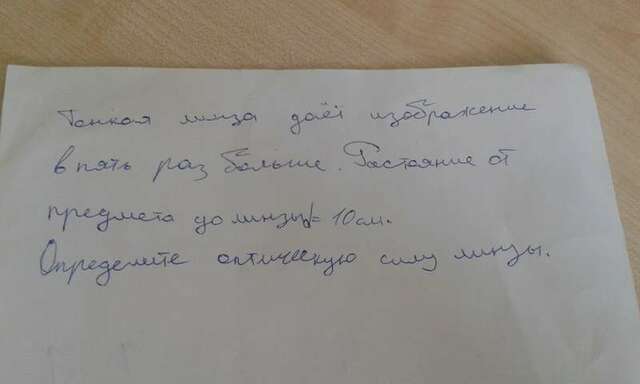 Тонкая линза даёт изображение
в пять раз больше. Растояние от
предмета до линзы d = 10 см.
Определите оптическую силу линзы.